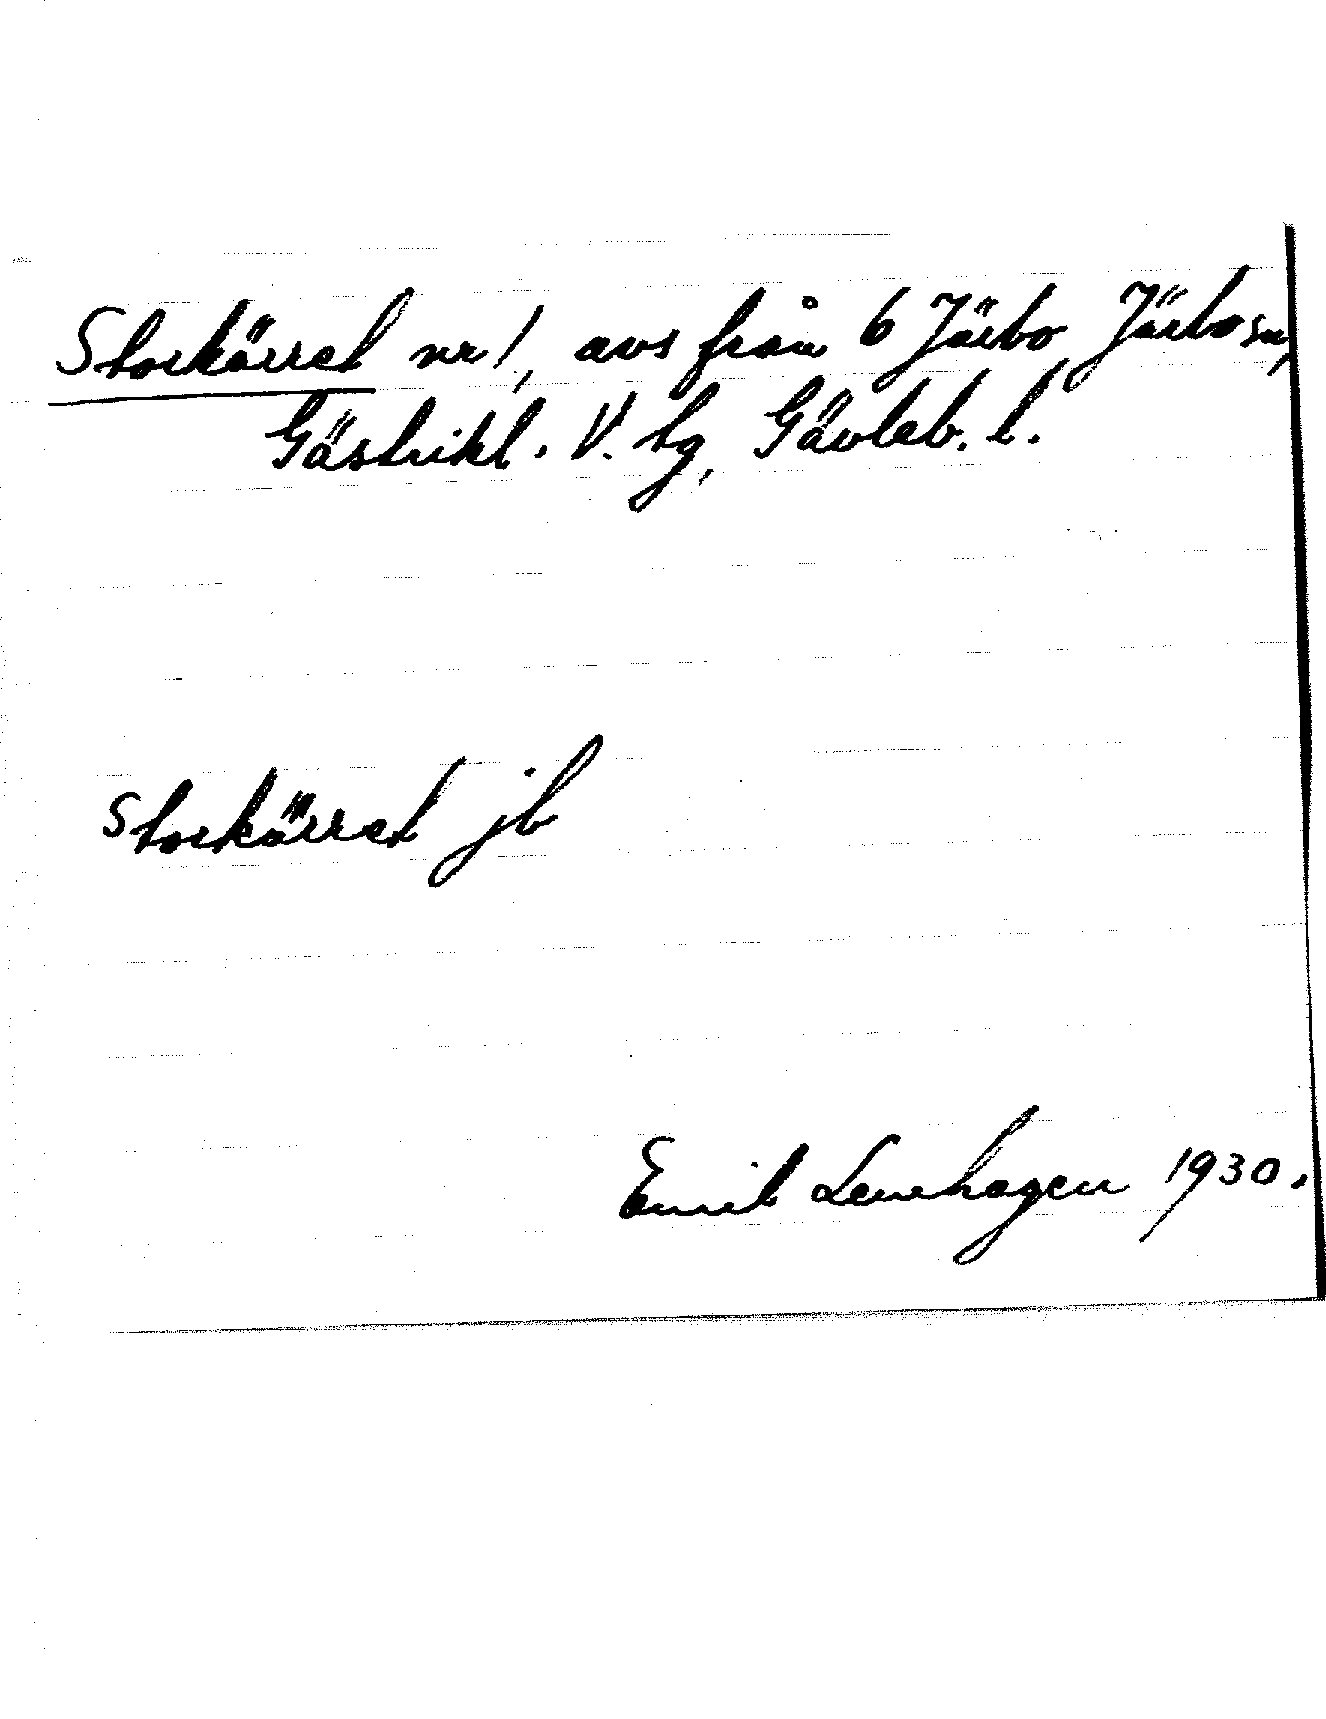 Storkärret nr 1, avs från 6 Järbo, Järbo sn,
Gästrikl. V. tg, Gävleb. l.
Storkärret jb
Emil Lenhagen 1930.